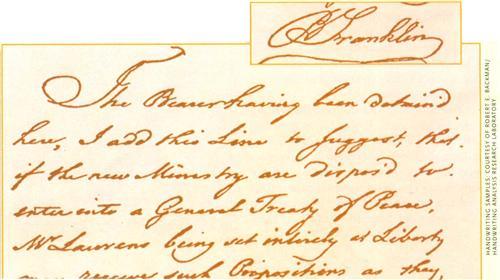 B Franklin
The Bearer having been detain'd
here, I add this Line to suggest, that
if the new Ministry are dispos'd to
enter into a General Treaty of Peace,
Mr Laurens being set intirely at Liberty
may receive such Propositions as they
HANDWRITING SAMPLES: COURTESY OF ROBERT E. BACKMAN/
HANDWRITING ANALYSIS RESEARCH LABORATORY